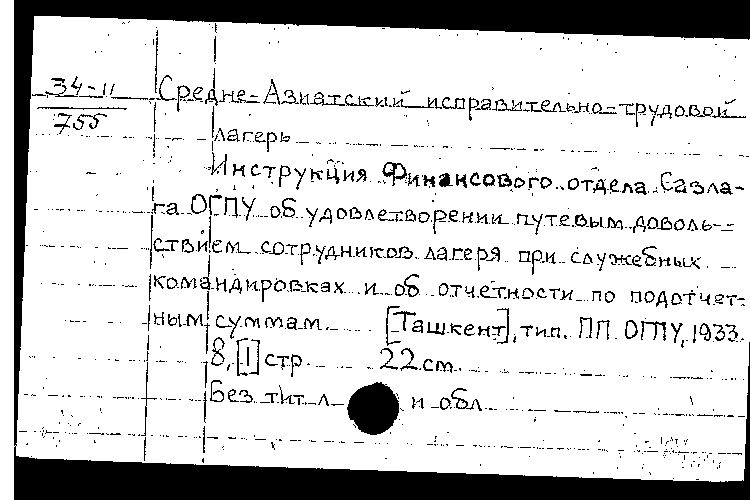 34-11
755
Средне-Азиатский исправительно-трудовой
лагерь
Инструкция Финансового отдела Сазла-
га ОГПУ об удовлетворении путевым доволь-
ствием сотрудников лагеря при служебных
командировках и об отчетности по подотчет-
ным суммам. [Ташкент], тип. ПП ОГПУ, 1933.
8, [1] стр. 22 см.
Без тит. л. и обл.